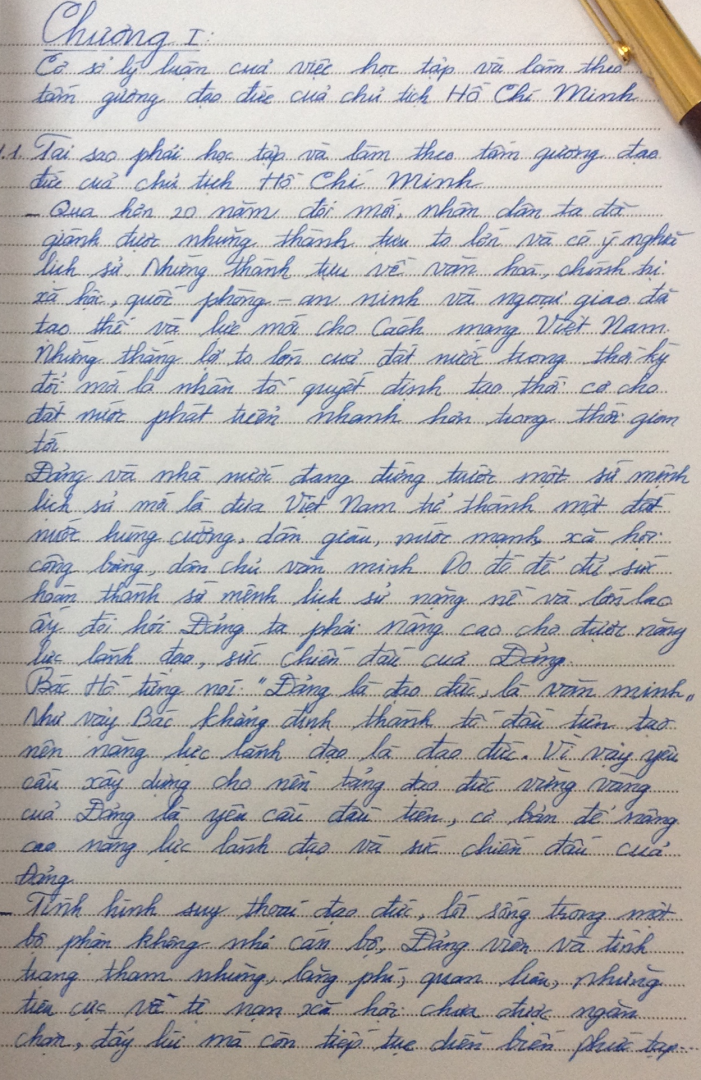 Chương I:
Cơ sở lý luận của việc học tập và làm theo
tấm gương đạo đức của chủ tịch Hồ Chí Minh
1.1. Tại sao phải học tập và làm theo tấm gương đạo
đức của chủ tịch Hồ Chí Minh
- Qua hơn 20 năm đổi mới, nhân dân ta đã
giành được những thành tựu to lớn và có ý nghĩa
lịch sử. Những thành tựu về văn hoá, chính trị
xã hội, quốc phòng - an ninh và ngoại giao đã
tạo thế và lực mới cho Cách mạng Việt Nam.
Những thắng lợi to lớn của đất nước trong thời kỳ
đổi mới là nhân tố quyết định tạo thời cơ cho
đất nước phát triển nhanh hơn trong thời gian
tới.
Đảng và nhà nước đang đứng trước một sứ mệnh
lịch sử mới là đưa Việt Nam trở thành một đất
nước hùng cường, dân giàu, nước mạnh, xã hội
công bằng, dân chủ văn minh. Do đó để đủ sức
hoàn thành sứ mệnh lịch sử nặng nề và lớn lao
ấy đòi hỏi Đảng ta phải nâng cao cho được năng
lực lãnh đạo, sức chiến đấu của Đảng.
Bác Hồ từng nói: "Đảng là đạo đức, là văn minh"
Như vậy Bác khẳng định thành tố đầu tiên tạo
nên năng lực lãnh đạo là đạo đức. Vì vậy yêu
cầu xây dựng cho nền tảng đạo đức vững vàng
của Đảng là yêu cầu đầu tiên, cơ bản để nâng
cao năng lực lãnh đạo và sức chiến đấu của
Đảng.
- Tình hình suy thoái đạo đức, lối sống trong một
bộ phận không nhỏ cán bộ, Đảng viên và tình
trạng tham nhũng, lãng phí, quan liêu, những
tiêu cực về tệ nạn xã hội chưa được ngăn
chặn, đẩy lùi mà còn tiếp tục diễn biến phức tạp...